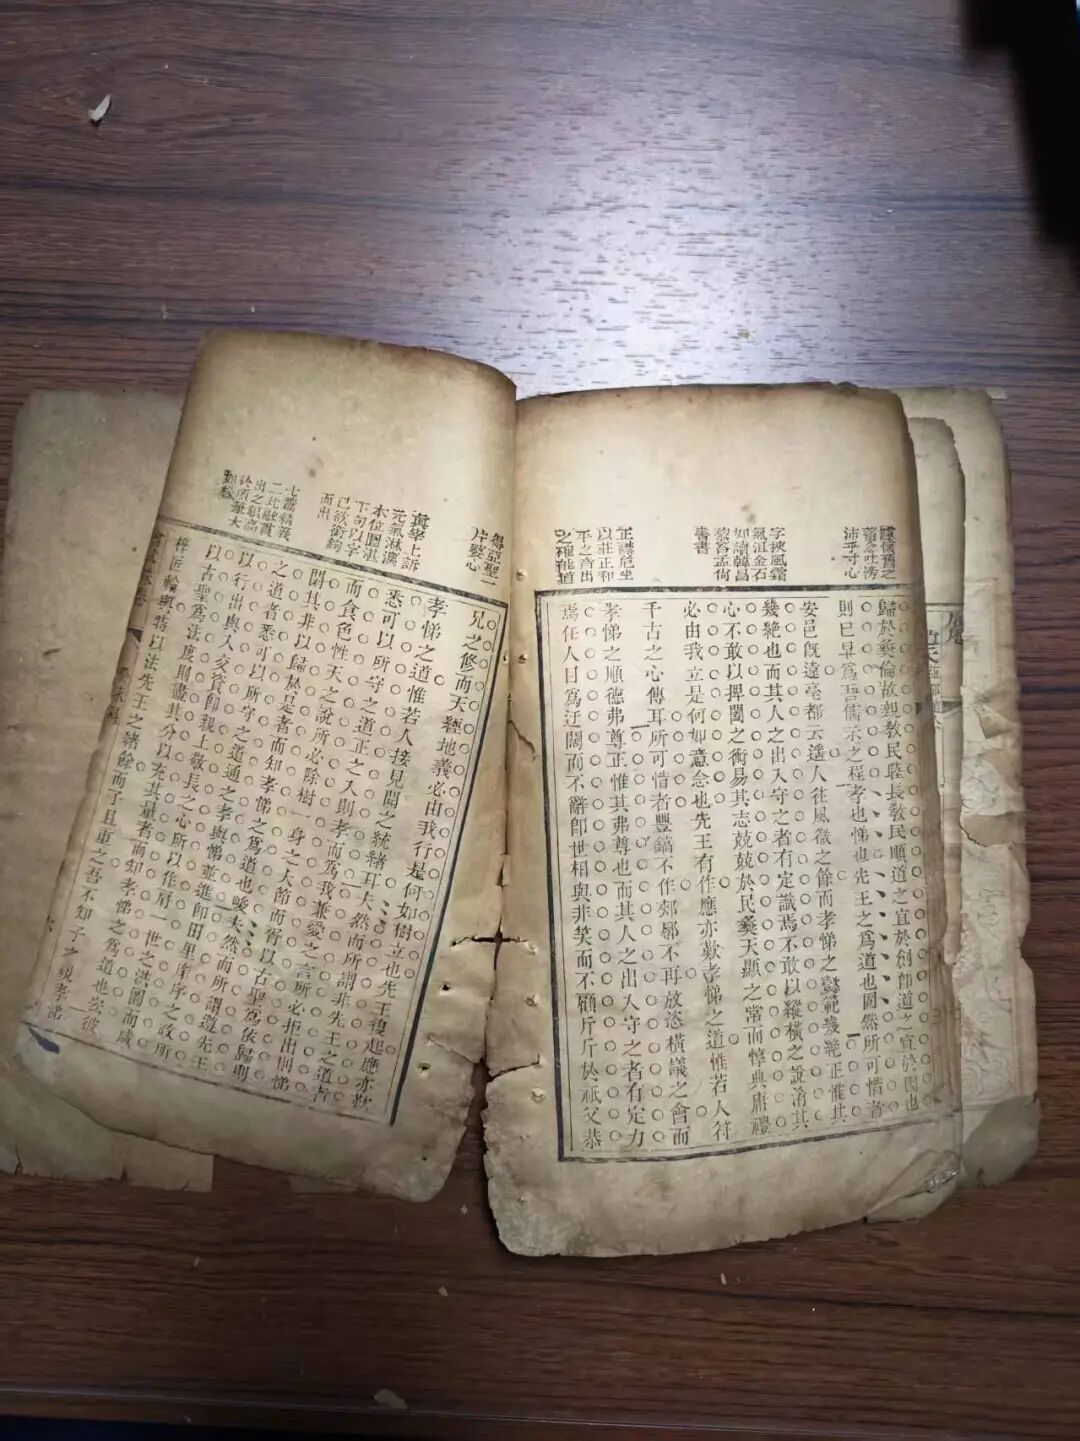 字挾風霜
氣沮金石
如讀韓昌
黎答孟尚
書書
正襟危坐
以莊正和
平之音出
之確能道
歸於彝倫故親教民睦長教民順道之宜於創卽道之宜於因也
則已早爲吾儒示之程孝也悌也先王之爲道也固然所可惜者
安邑旣遠亳都云遙人往風微之餘而孝悌之懿範幾絶正惟其
幾絶也而其人之出入守之者有定識焉不敢以縱橫之說淆其
心不敢以捭闔之術易其志兢兢於民彝天顯之常而惇典庸禮
必由我立是何如意念也先王有作應亦歎孝悌之道惟若人符
千古之心傳耳所可惜者豐鎬不作郟鄏不再放恣橫議之會而
孝悌之順德弗尊正惟其弗尊也而其人之出入守之者有定力
焉任人目爲迂闊而不辭卽世相與非笑而不顧斤斤於祗父恭
片婆心
眞學上訴
元氣淋漓
本位圓湛
下句以字
已欲銜絢
而出
七藝精義
二比融貫
出之眼高
於頂筆大
兄之修而天經地義必由我行是何如樹立也先王復起應亦歎
孝悌之道惟若人接見聞之統緒耳夫然而所謂非先王之道者
悉可以所守之道正之入則孝而爲我兼愛之言所必拒出則悌
而食色性天之說所必除樹一身之大節而胥以古聖爲依歸明
閑其非以歸於是者而知孝悌之爲道也峻夫然而所謂遵先王
之道者悉可以所守之道通之孝與悌並進卽田里庠序之政所
以行出與入交資卽親上敬長之心所以作肩一世之洪圖而咸
以古聖爲法度則盡其分以充其量者而知孝悌之爲道也宏彼
梓匠輪輿特以法先王之緒餘而子且重之吾不知子之視孝悌